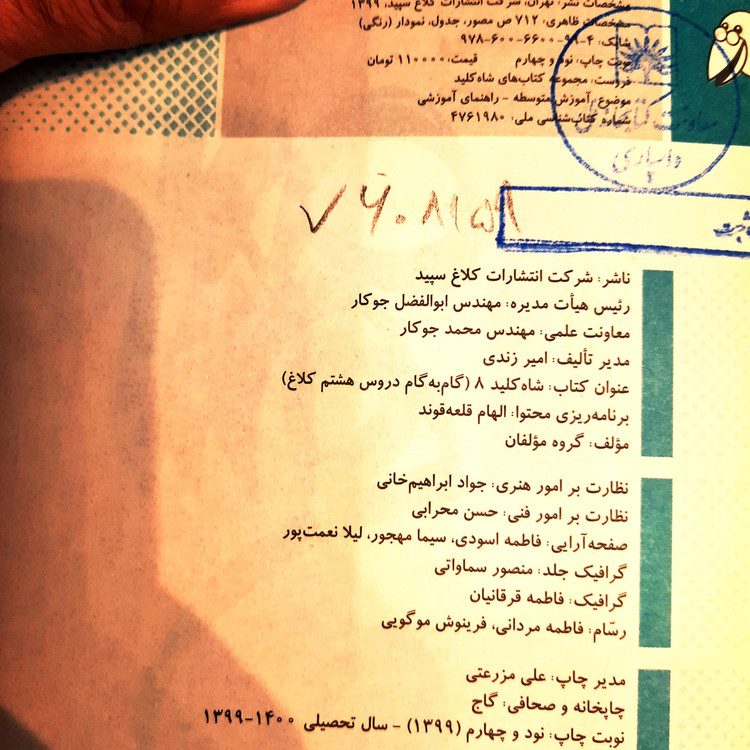 مشخصات نشر: تهران، شرکت انتشارات کلاغ سپید، ۱۳۹۹
مشخصات ظاهری: ۷۱۲ ص مصور، جدول، نمودار (رنگی)
شابک: ۴-۹۹-۶۶۰۰-۶۰۰-۹۷۸
نوبت چاپ: نود و چهارم قیمت: ۱۱۰۰۰۰ تومان
فروست: مجموعه کتاب‌های شاه‌کلید
موضوع: آموزش متوسطه - راهنمای آموزشی
شماره کتاب‌شناسی ملی: ۴۷۶۱۹۸۰
واسپاری
ثبت
ناشر: شرکت انتشارات کلاغ سپید
رئیس هیأت مدیره: مهندس ابوالفضل جوکار
معاونت علمی: مهندس محمد جوکار
مدیر تألیف: امیر زندی
عنوان کتاب: شاه‌کلید ۸ (گام‌به‌گام دروس هشتم کلاغ)
برنامه‌ریزی محتوا: الهام قلعه‌قوند
مؤلف: گروه مؤلفان
نظارت بر امور هنری: جواد ابراهیم‌خانی
نظارت بر امور فنی: حسن محرابی
صفحه‌آرایی: فاطمه اسودی، سیما مهجور، لیلا نعمت‌پور
گرافیک جلد: منصور سماواتی
گرافیک: فاطمه قرقانیان
رسّام: فاطمه مردانی، فرینوش موگویی
مدیر چاپ: علی مزرعتی
چاپخانه و صحافی: گاج
نوبت چاپ: نود و چهارم (۱۳۹۹) - سال تحصیلی ۱۴۰۰-۱۳۹۹